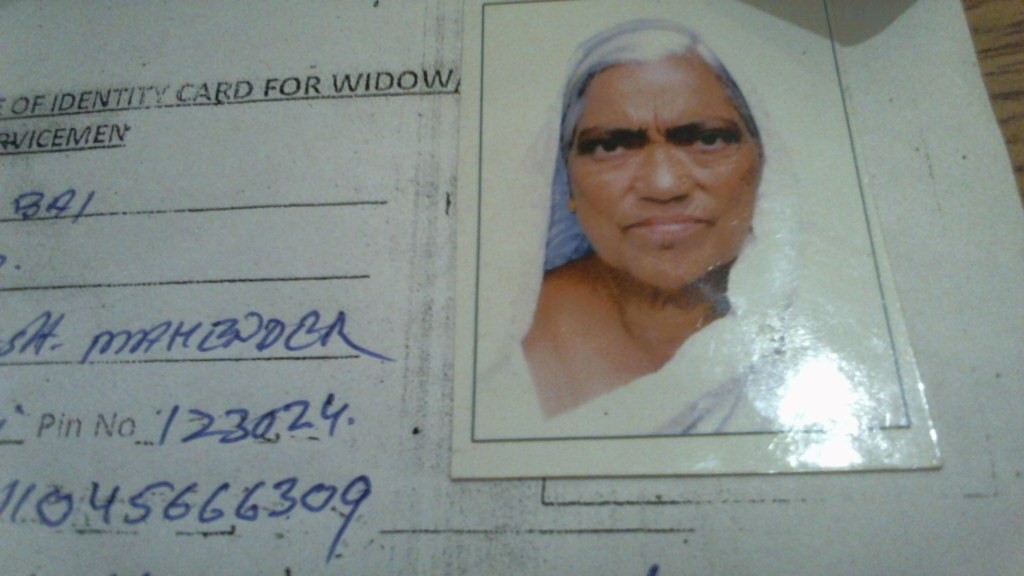 E OF IDENTITY CARD FOR WIDOW/
RVICEMEN
BAI
MAHENDER
Pin No. 123024.
1045666309